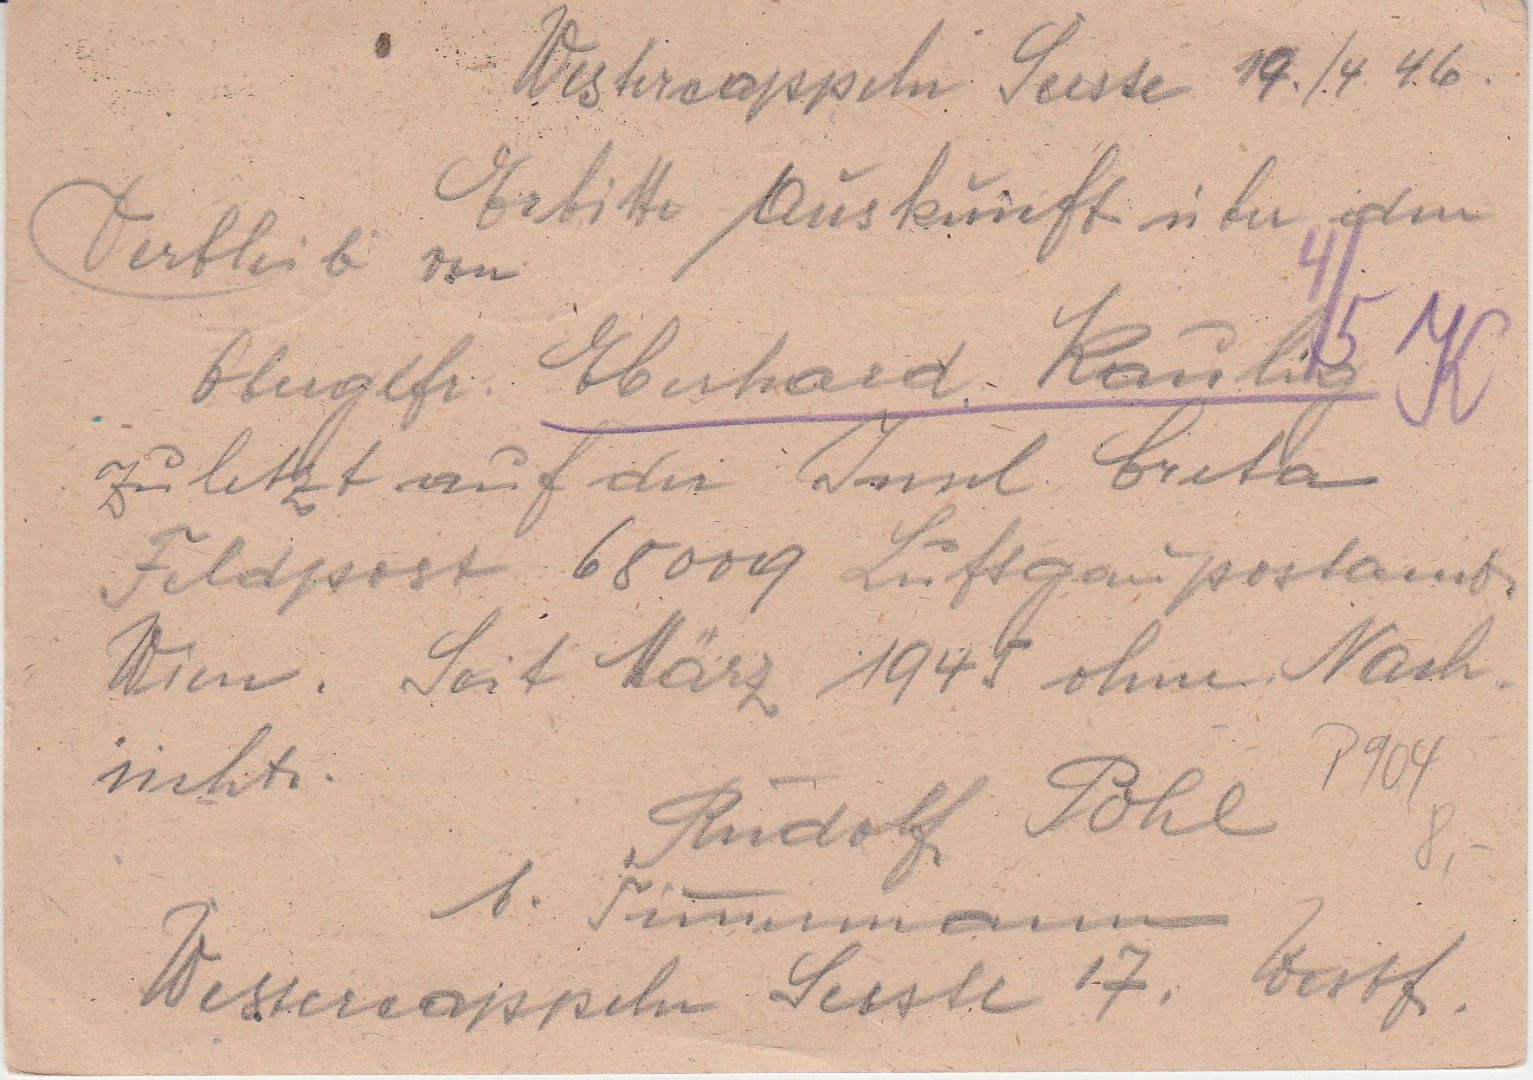 Westercappeln Seeste 19./4 46.
Erbitte Auskunft über den
Verbleib von
4/5 K
Obergefr. Eberhard Kaulig
zuletzt auf der Insel Creta
Feldpost 68009 Luftgaupostamt.
Wien. Seit März 1945 ohne Nach-
richt.
P904
8,-
Rudolf Pohl
b. Timmermann
Westercappeln Seeste 17. Westf.